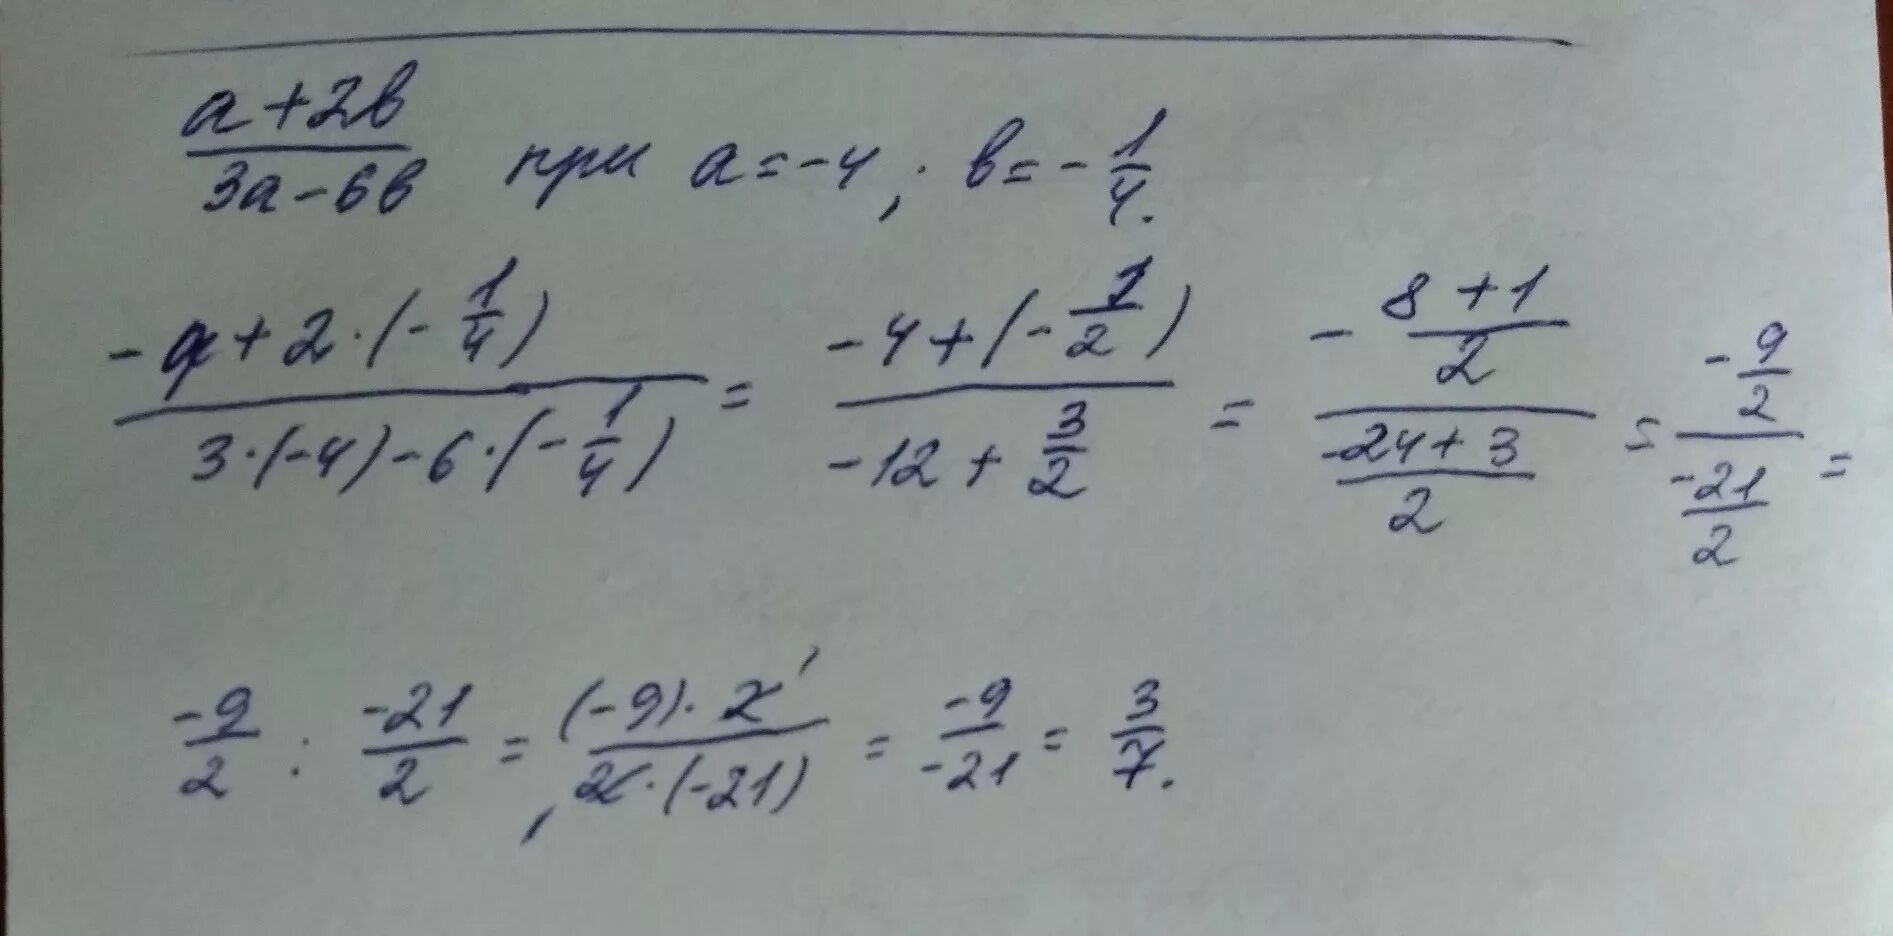 (a+2b)/(3a-6b) при a=-4; b=-1/4.
(-4+2·(-1/4))/(3·(-4)-6·(-1/4)) = (-4+(-1/2))/(-12+3/2) = (-(8+1)/2)/((-24+3)/2) = (-9/2)/(-21/2) =
-9/2 : -21/2 = ((-9)·2)/(2·(-21)) = -9/-21 = 3/7.